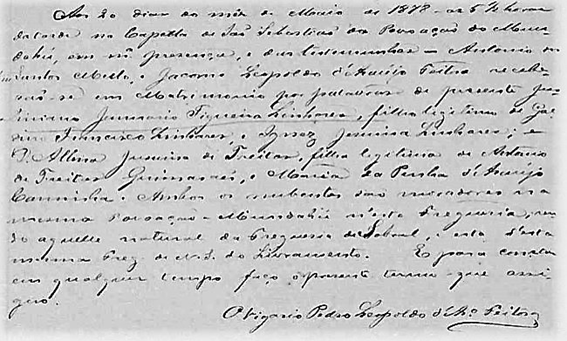 Aos 20 dias do mez de Maio de 1878 as 5 ½ horas
da tarde na Capella de São Sebastião da Povoação do Mun-
dahú, em mª presença, e das testemunhas - Antonio
Mello, e Jacome Leopoldo d'Araujo Feitosa recebe-
rão-se em Matrimonio por palavras de presente
Januario Figueira Linhares, filho legitimo de
Francisco Linhares, e Ignez Linhares; e
D. Albina de Freitas, filha legitima de Antonio
de Freitas Guimarães, e Maria da Penha d'Araujo
Caminha. Ambos os nubentes são moradores na
mesma Povoação - Mundahú n'esta Freguesia,
do aquelle natural da Freguesia de Sobral, e esta d'esta
mesma Freg. de N. S. do Livramento. E para constar
em qualquer tempo faço o presente termo que assi-
gno.
O Vigario Pedro Leopoldo d'Aº Feitosa